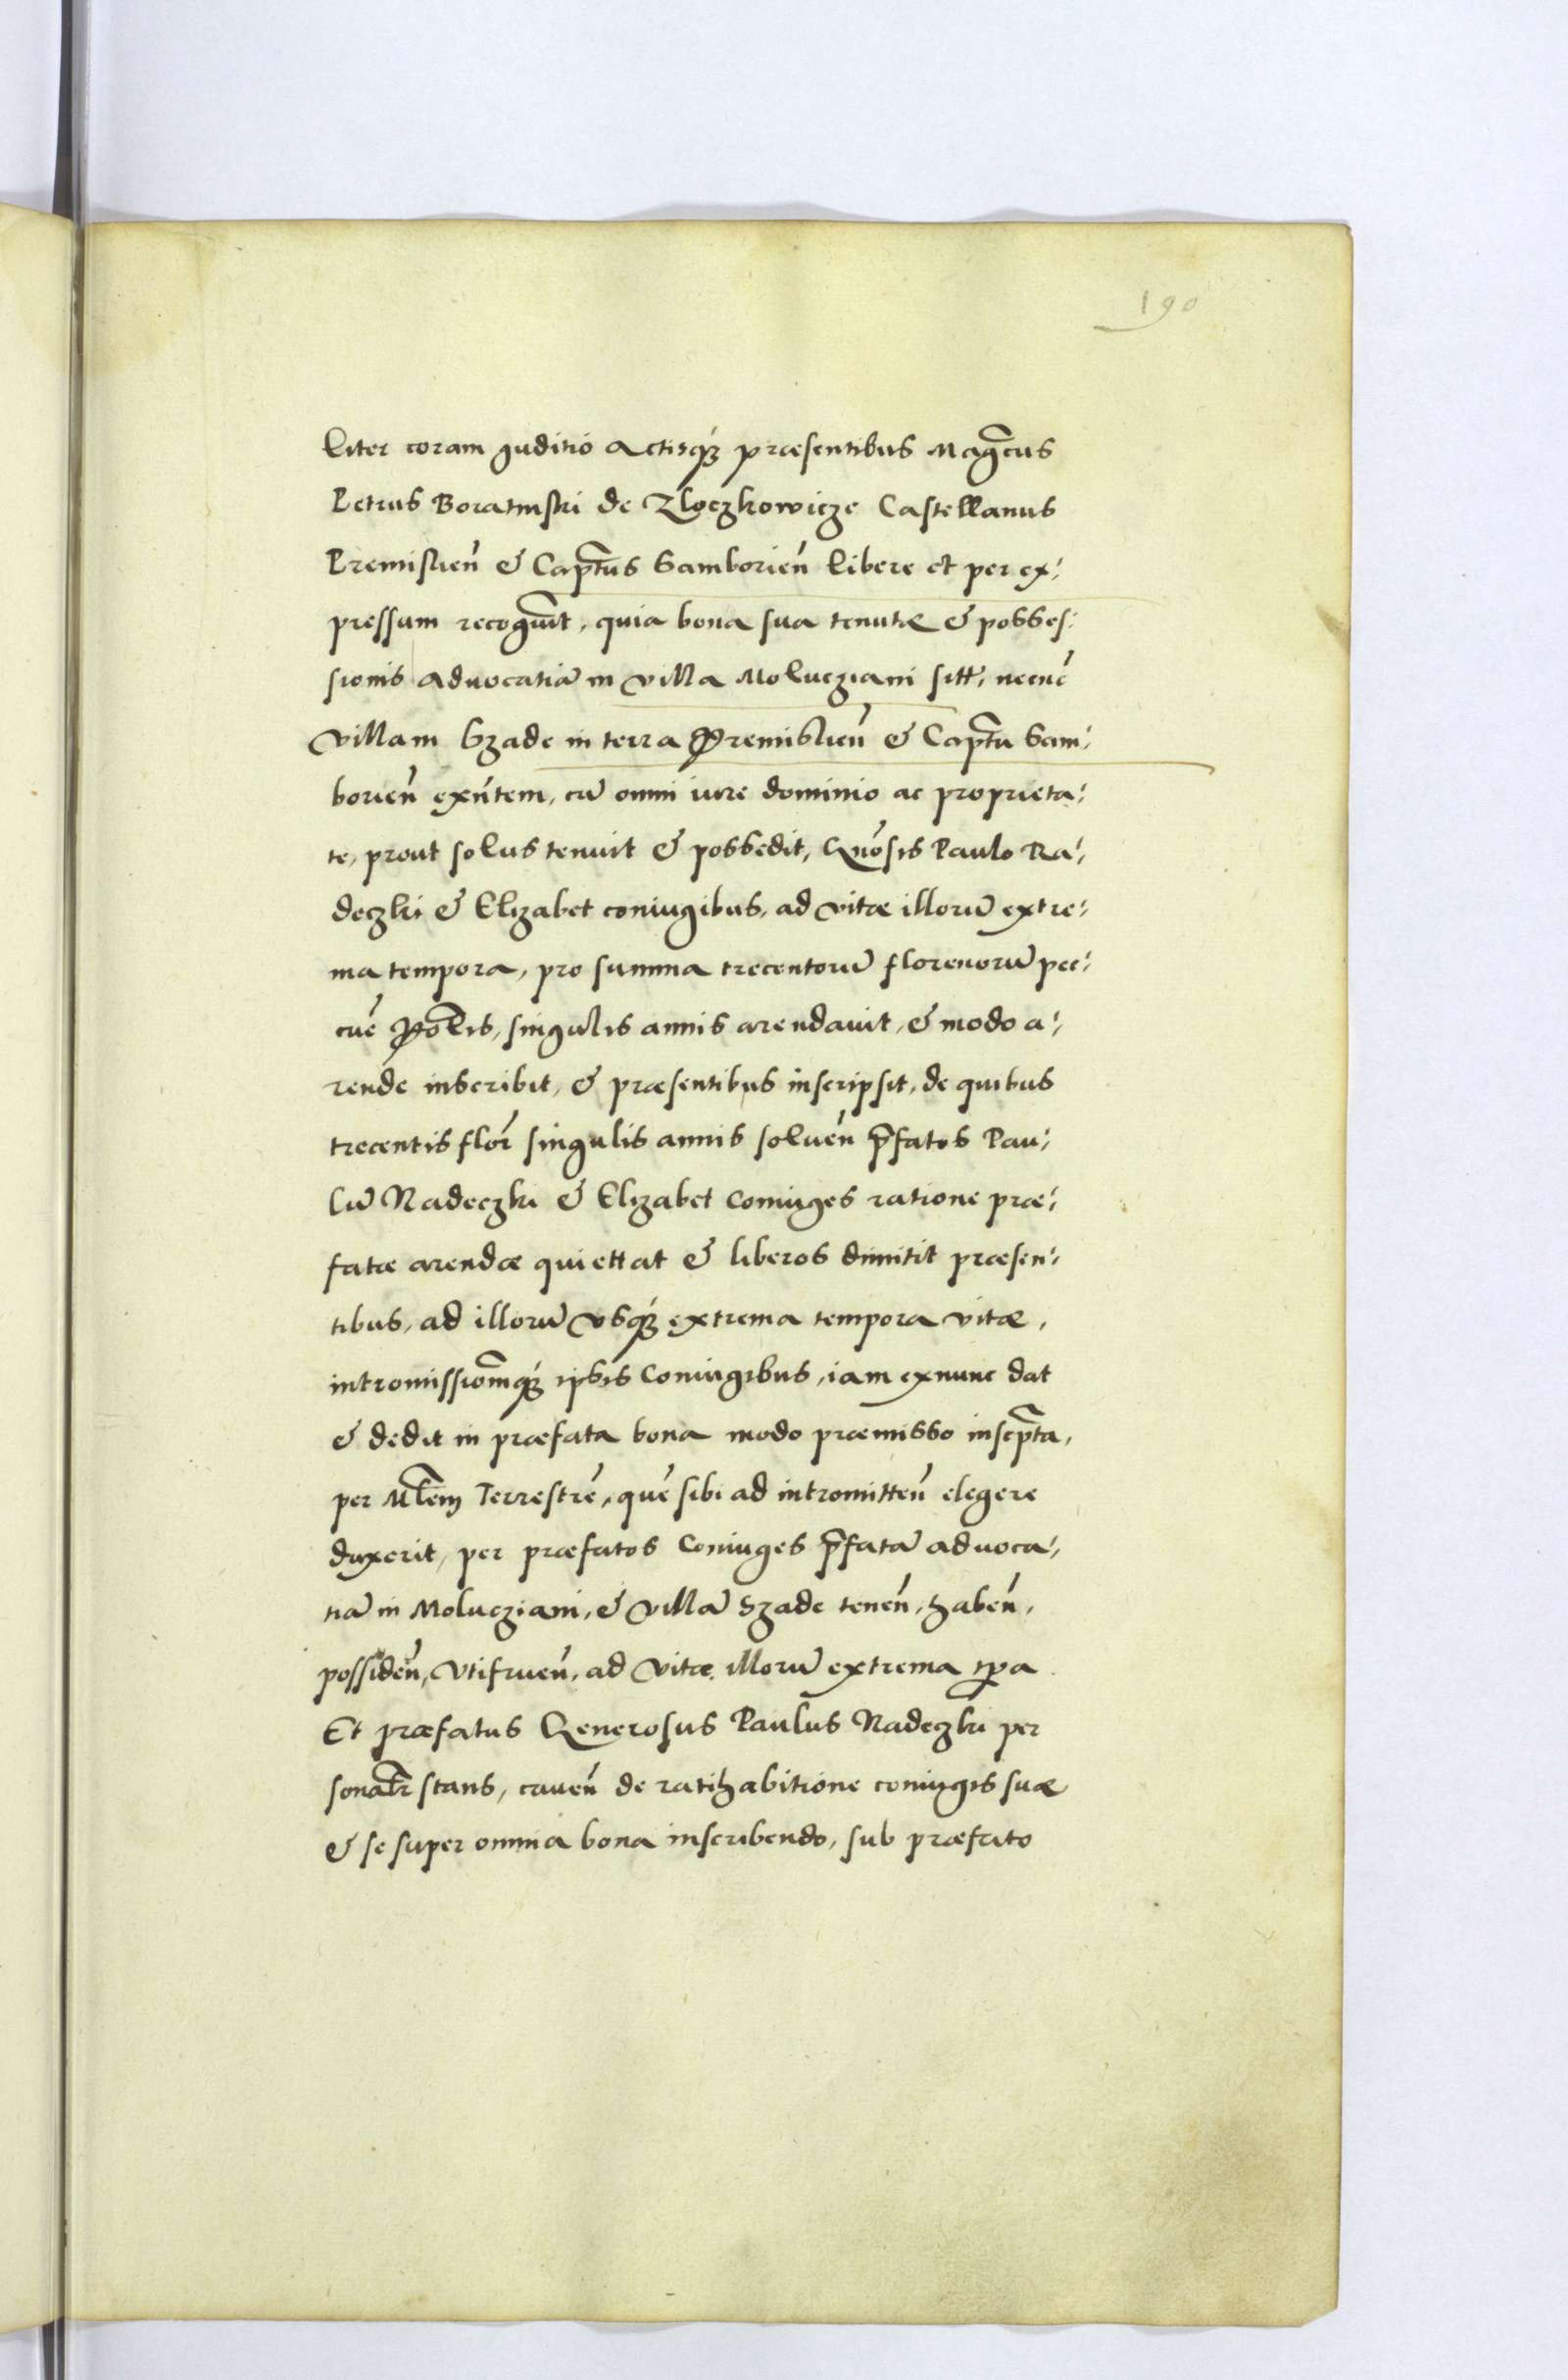 190
liter coram Juditio Actisq́ꝫ præsentibus Mag͡cus
Petrus Boratinski de Zloczkowicze Castellanus
Premislien̄ & Cap͡tus Samborien̄ libere et per ex⸗
pressum recog͡uit, quia bona sua tenutæ & posses⸗
sionis Aduocatiā in villa Molucziani sitt̄, necnō
villam Szade in terra Premislien̄ & Cap͡tu Sam⸗
borien̄ exn̄tem, cū omni iure dominio ac proprieta⸗
te, prout solus tenuit & possedit, Gnōsis Paulo Na⸗
deczki & Elizabet coniugibus, ad vitæ illorū extre⸗
ma tempora, pro summa trecentorū florenorū pec⸗
cūe Pol͡is, singulis annis arendauit, & modo a⸗
rende inscribit, & præsentibus inscripsit, de quibus
trecentis flor̄ singulis annis soluen̄ p͡fatos Pau⸗
lū Nadeczki & Elizabet Coniuges ratione præ⸗
fatæ arendæ quiettat & liberos dimitit præsen⸗
tibus, ad illorū vsq́ꝫ extrema tempora vitæ,
intromissiom̄q́ꝫ ipsis Coniugibus, iam exnunc dat
& dedit in præfata bona modo præmisso inscp͡ta,
per Ml͡em Terrestrē, quē sibi ad intromitten̄ elegere
duxerit, per præfatos Coniuges p͡fatā aduoca⸗
tiā in Molucziani, & villā Szade tenen̄, haben̄,
possiden̄, vtifruen̄, ad vitæ illorū extrema tp͡a
Et præfatus Generosus Paulus Nadeczki per
sonal͡r stans, cauen̄ de ratihabitione coniugis suæ
& se super omnia bona inscribendo, sub præfato